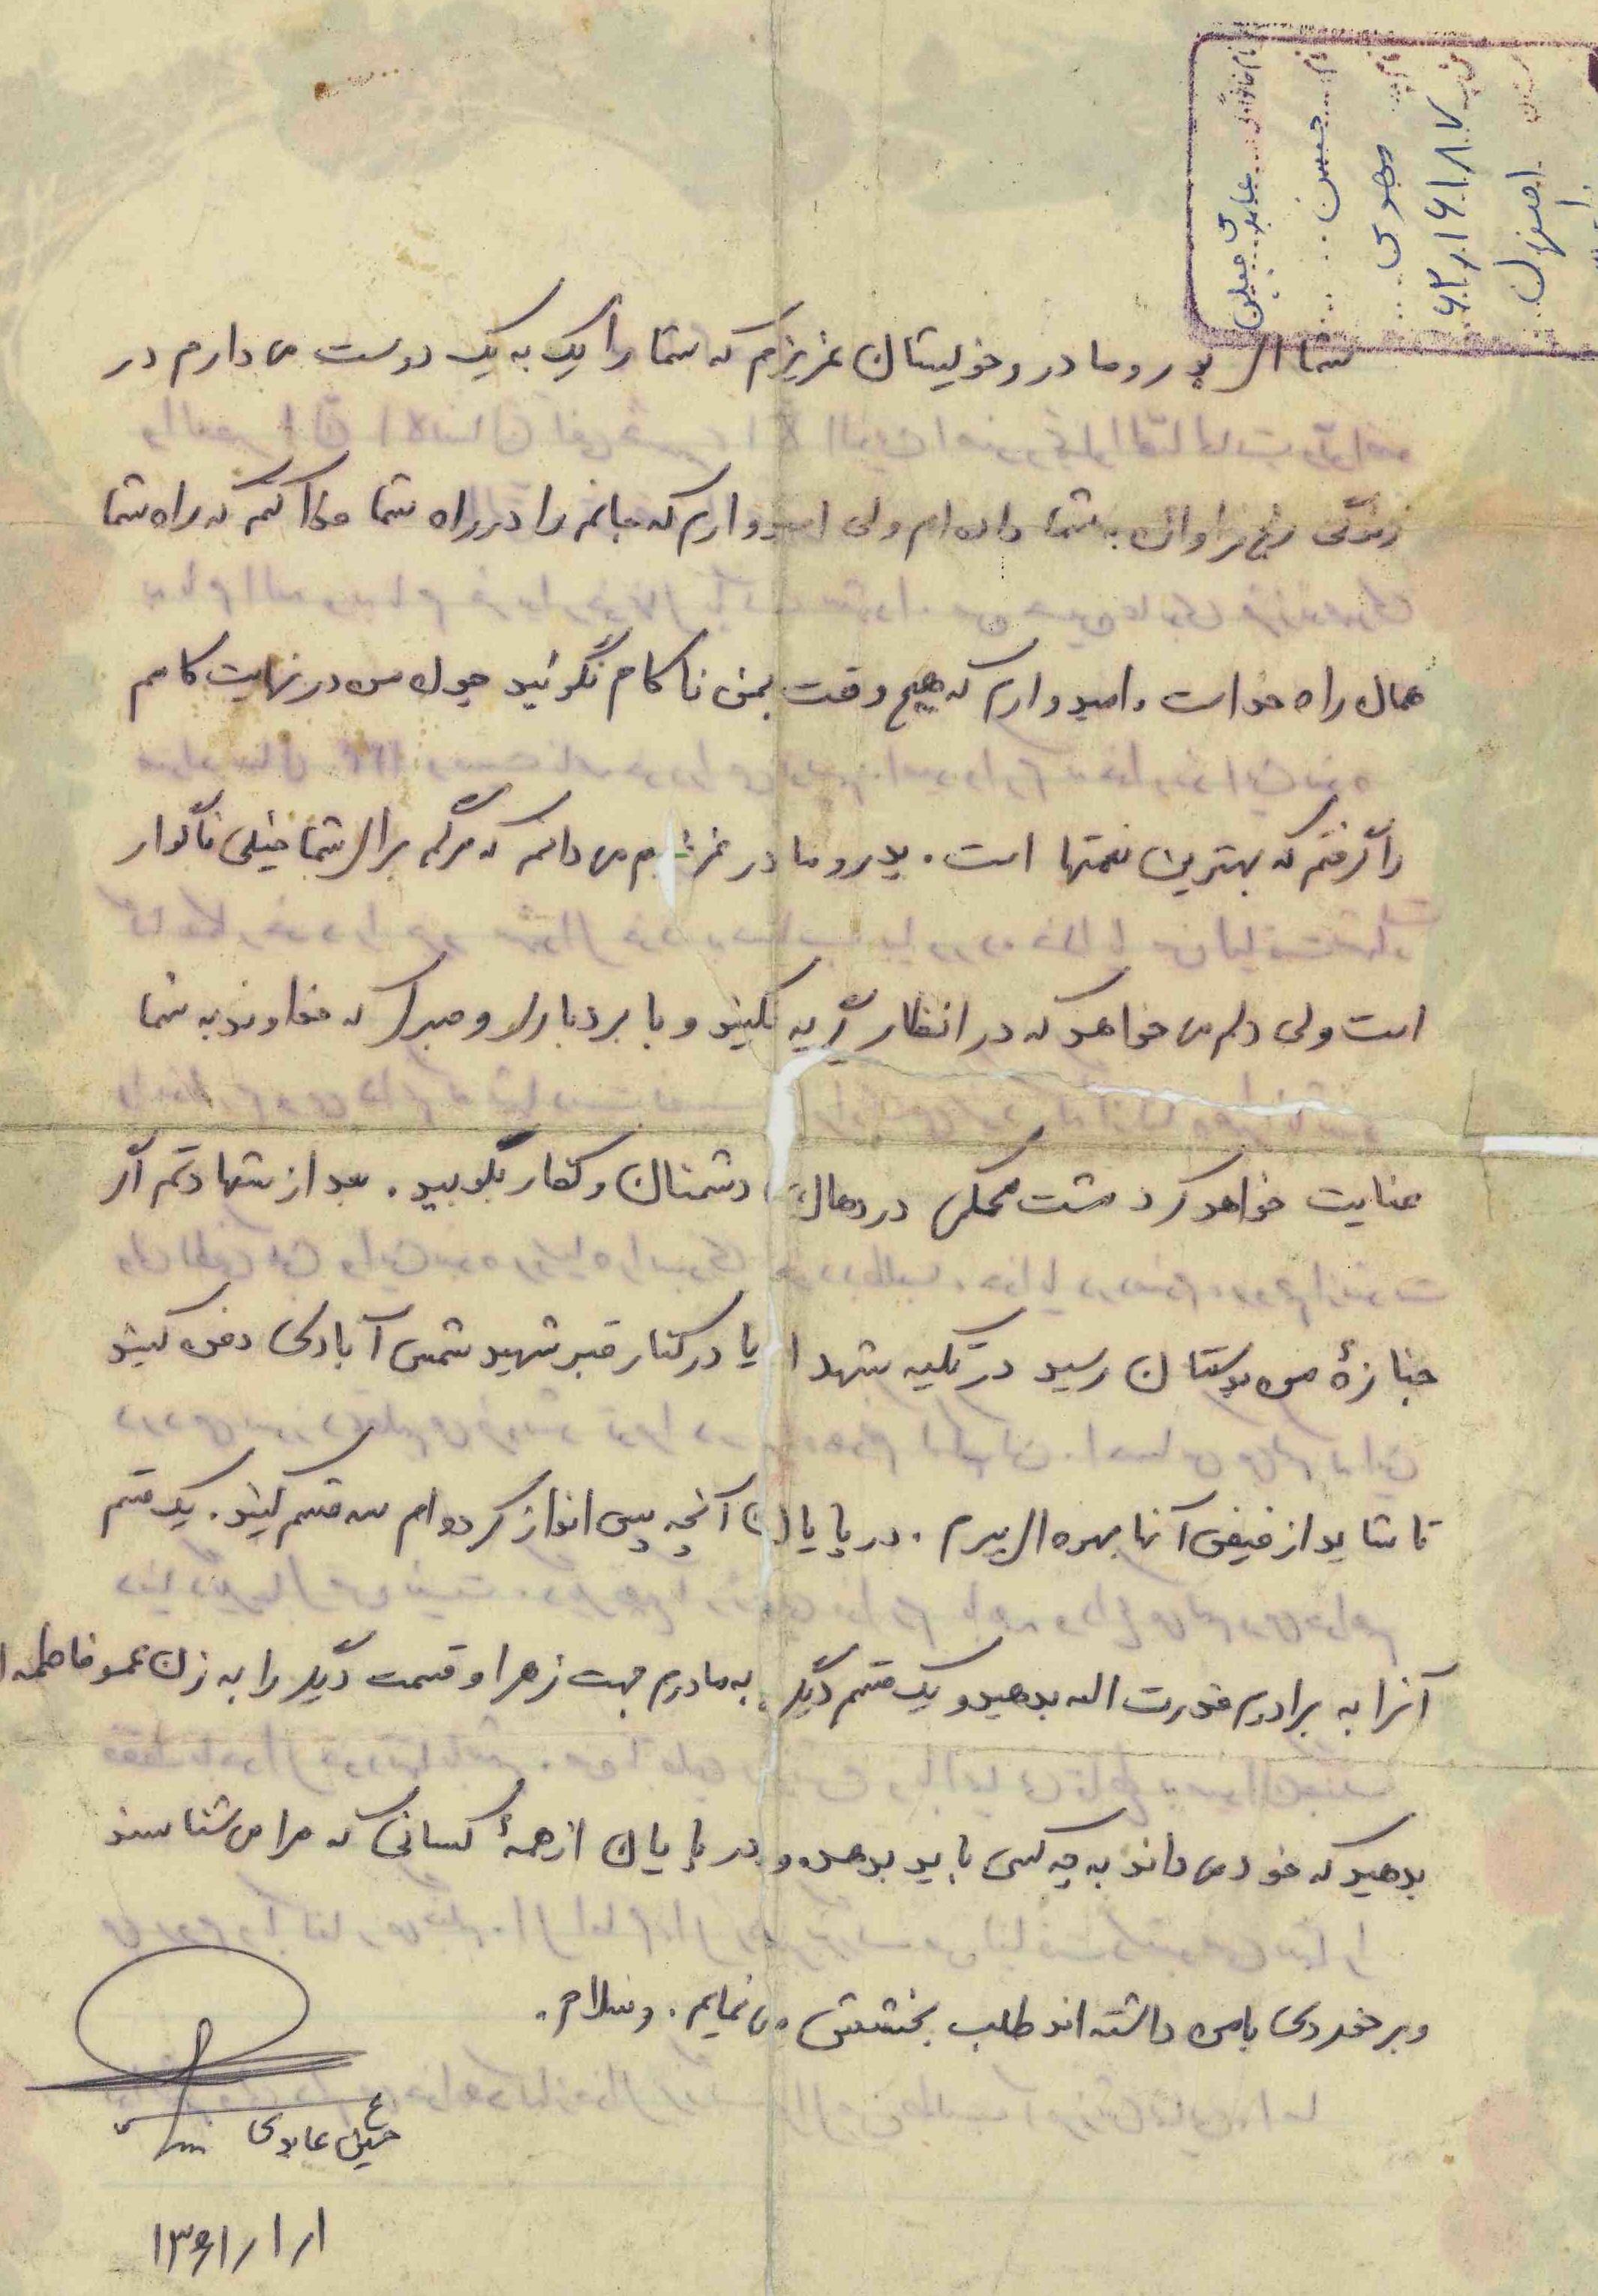 نام خانوادگی عابدی جبلی
نام حسین
نام پدر مهدی
۶۲/۱۶۱۸۷
اصفهان
شما ای پدر و مادر و خویشان عزیزم که شما را یک به یک دوست می دارم در
زندگی رنج فراوان به شما داده ام ولی امیدوارم که جانم را در راه شما فدا کنم که راه شما
همان راه خداست و امیدوارم که هیچ وقت بمن ناکام نگوئید چون من در نهایت کامم
را گرفتم که بهترین نعمتها است. پدر و مادر عزیزم می دانم که مرگم برای شما خیلی ناگوار
است ولی دلم می خواهد که در انظار گریه نکنید و با بردباری و صبری که خداوند به شما
عنایت خواهد کرد مشت محکمی در دهان دشمنان و کفار بکوبید. بعد از شهادتم اگر
جنازهٔ من بدستان رسید در تکیه شهدا یا در کنار قبر شهید شمس آبادی دفن کنید
تا شاید از فیض آنها بهره ای ببرم. در پایان آنچه پس انداز کرده ام سه قسم کنید. یک قسم
آنرا به برادرم قدرت اله بدهید و یک قسم دیگر به مادرم جهت زهرا و قسمت دیگر را به زن عمو فاطمه
بدهید که خود می داند به چه کسی باید بدهد و در پایان از همهٔ کسانی که مرا می شناسند
و برخوردی با من داشته اند طلب بخشش می نمایم. وسلام.
حسین عابدی
۱۳۶۱/۱/۱